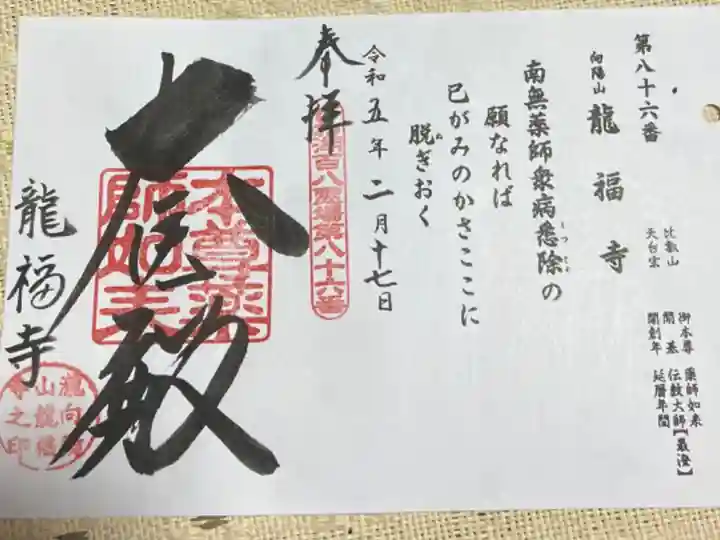 第八十六番
向陽山
龍福寺
比叡山
天台宗
御本尊 薬師如来
開基 伝教大師【最澄】
開創年 延暦年間
南無薬師衆病悉除の
しつ じょ
願なれば
己がみのかさここに
脱ぎおく
ぬ
令和五年二月十七日
奉拝
百八霊場第八十六番
本尊薬
師如来
殿
龍福寺